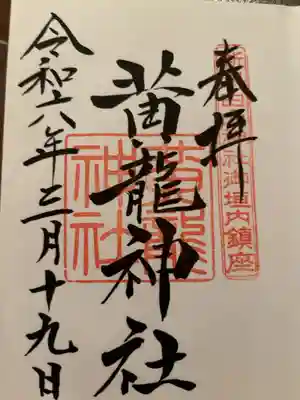 奉拝
神社御垣内鎮座
黄龍神社
令和六年三月十九日